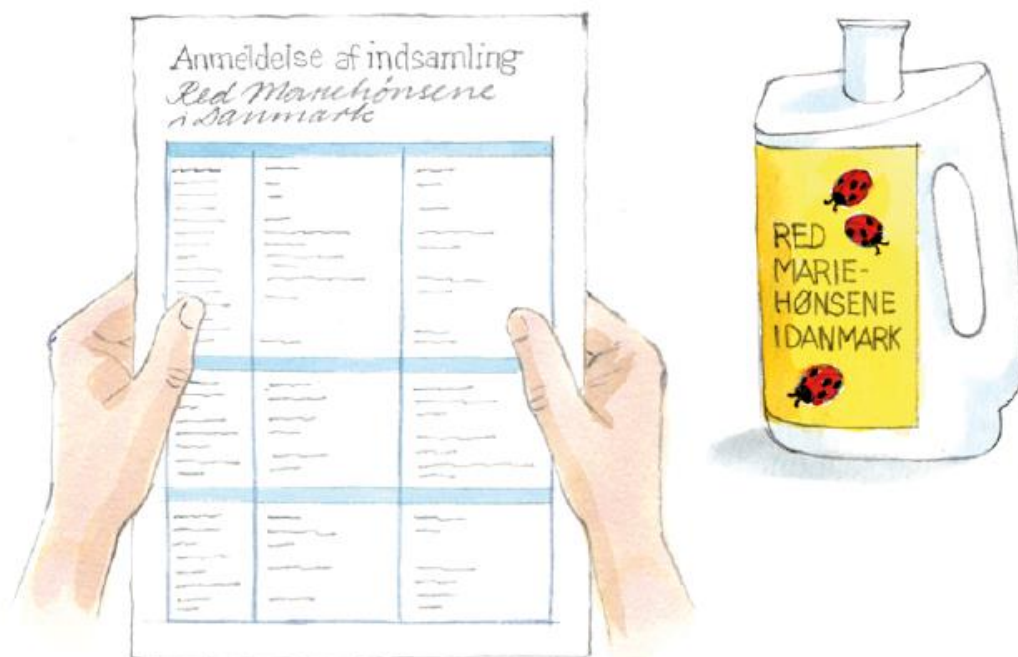 Anmeldelse af indsamling
Red Mariehønsene
i Danmark
RED
MARIE-
HØNSENE
I DANMARK